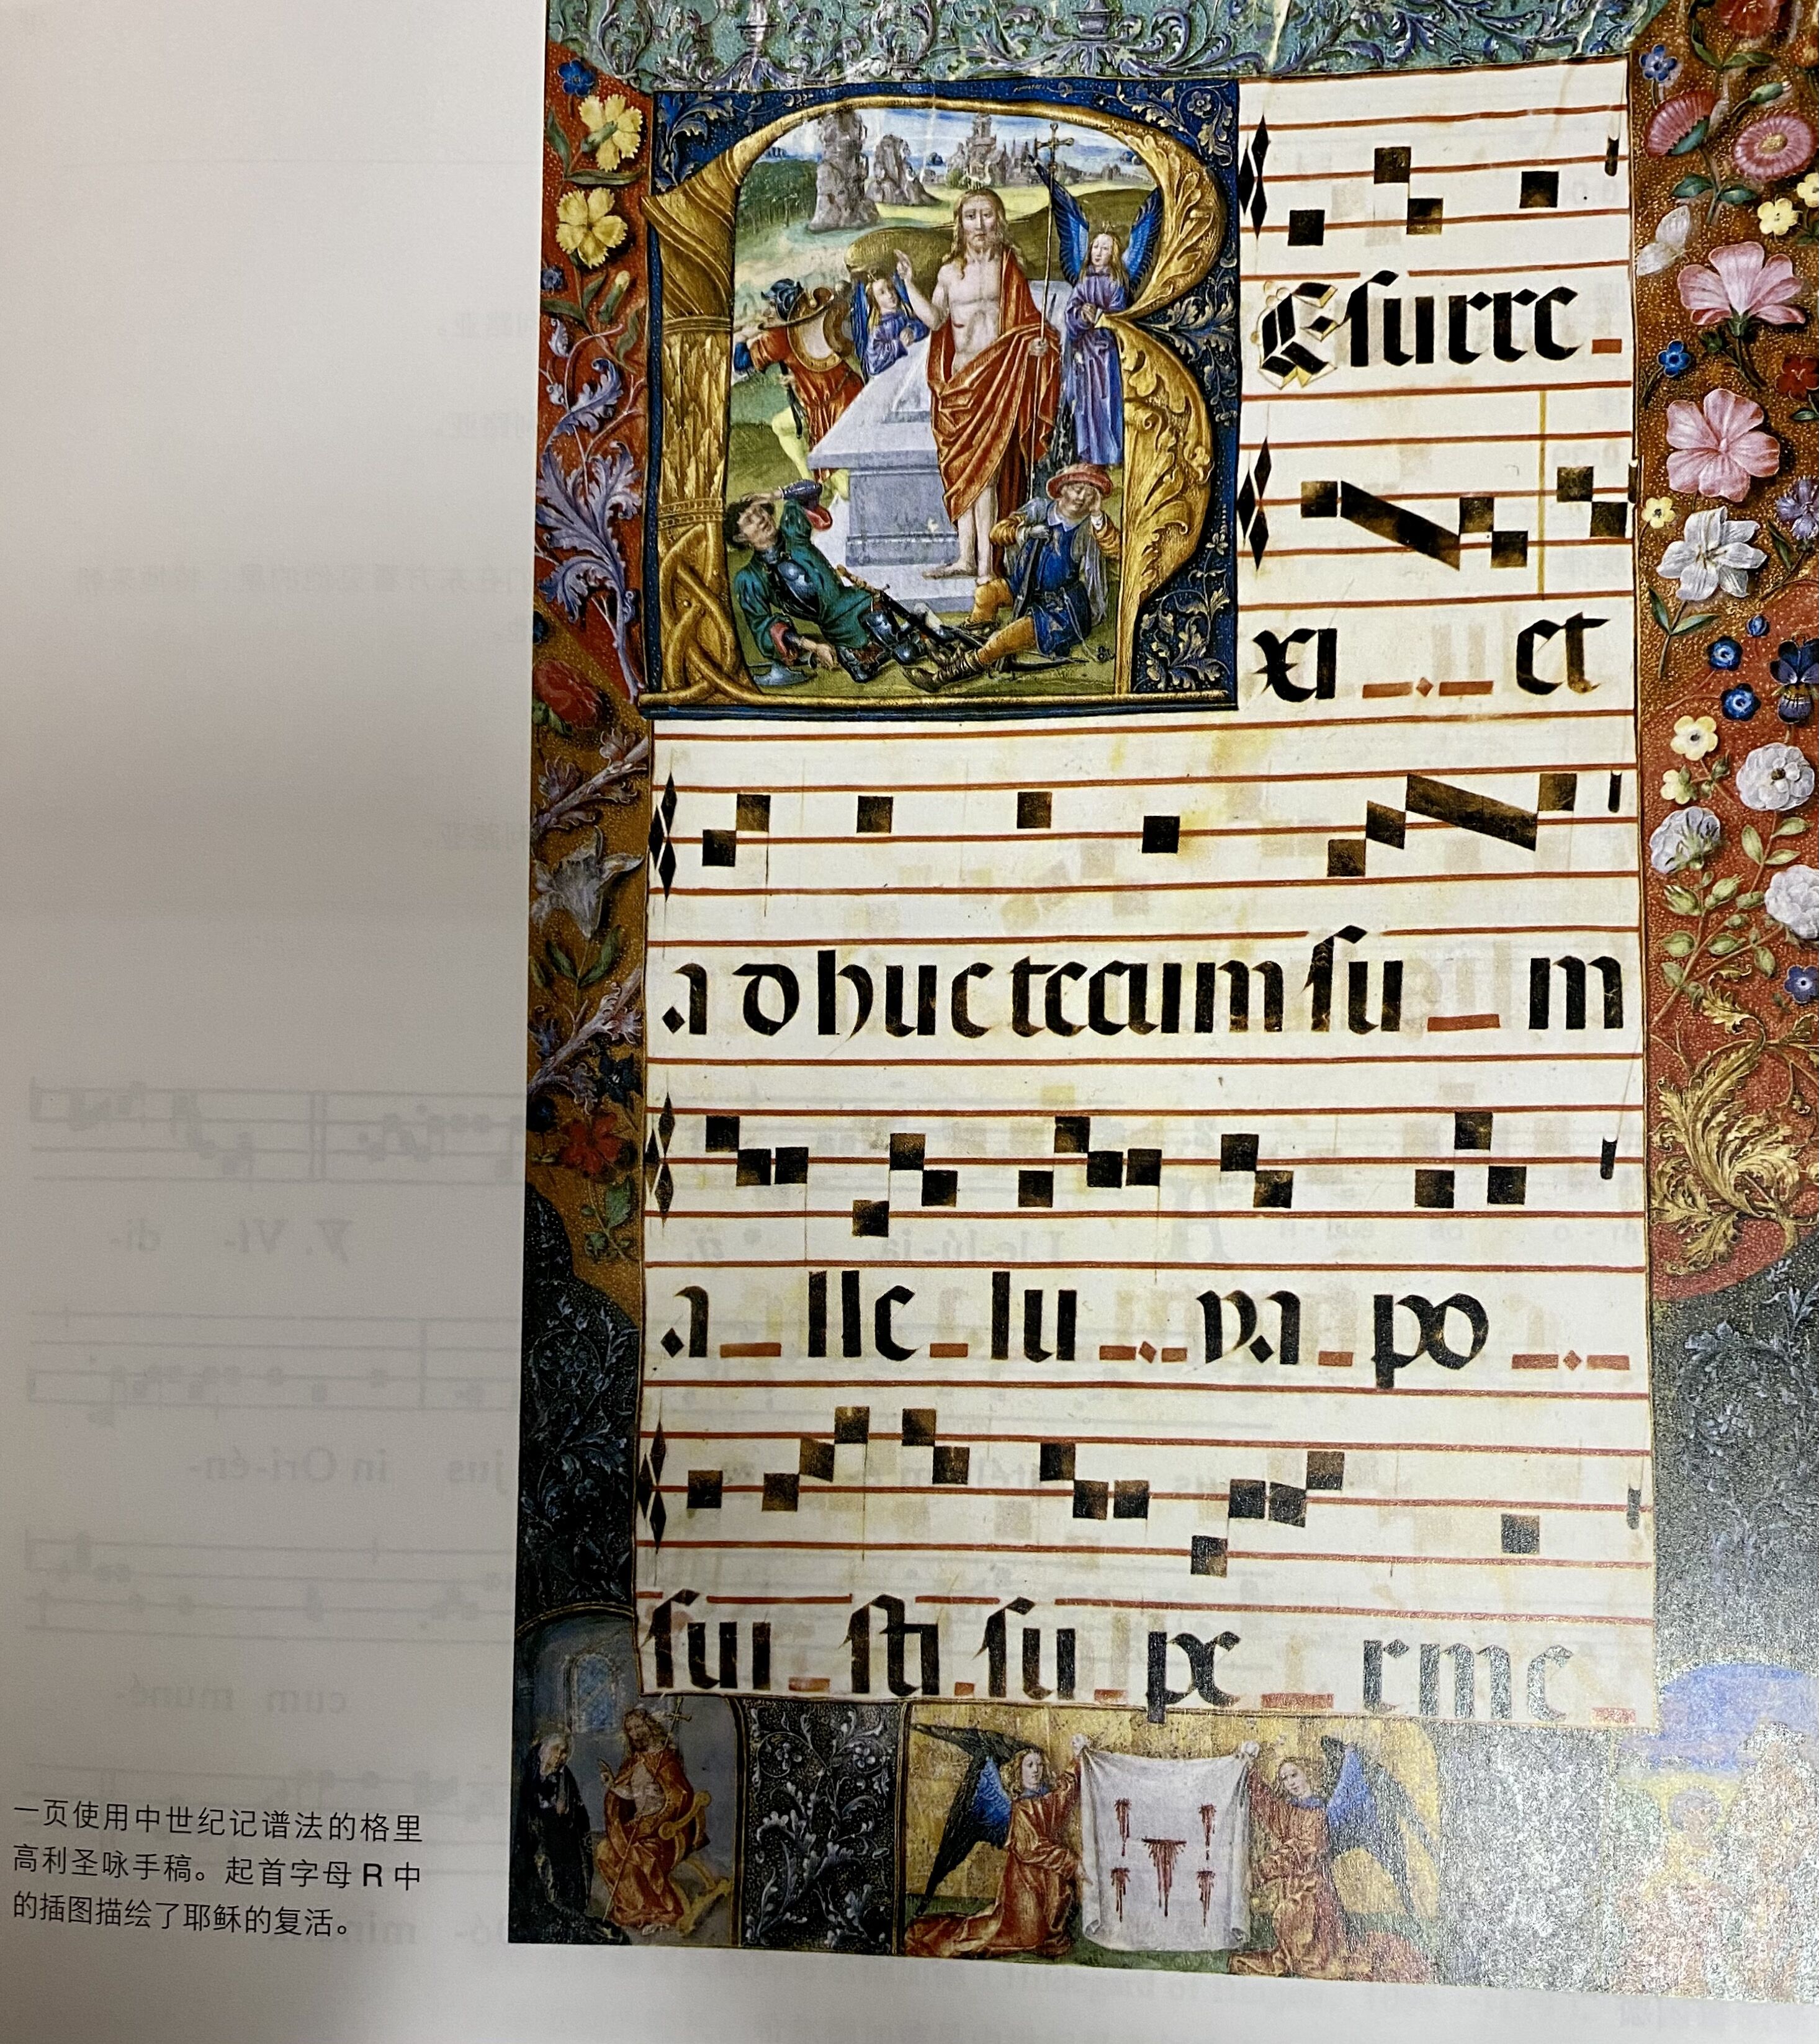 REsurre
xi et
adhuc tecum sum
alleluya po
suisti superme
一页使用中世纪记谱法的格里
高利圣咏手稿。起首字母 R 中
的插图描绘了耶稣的复活。